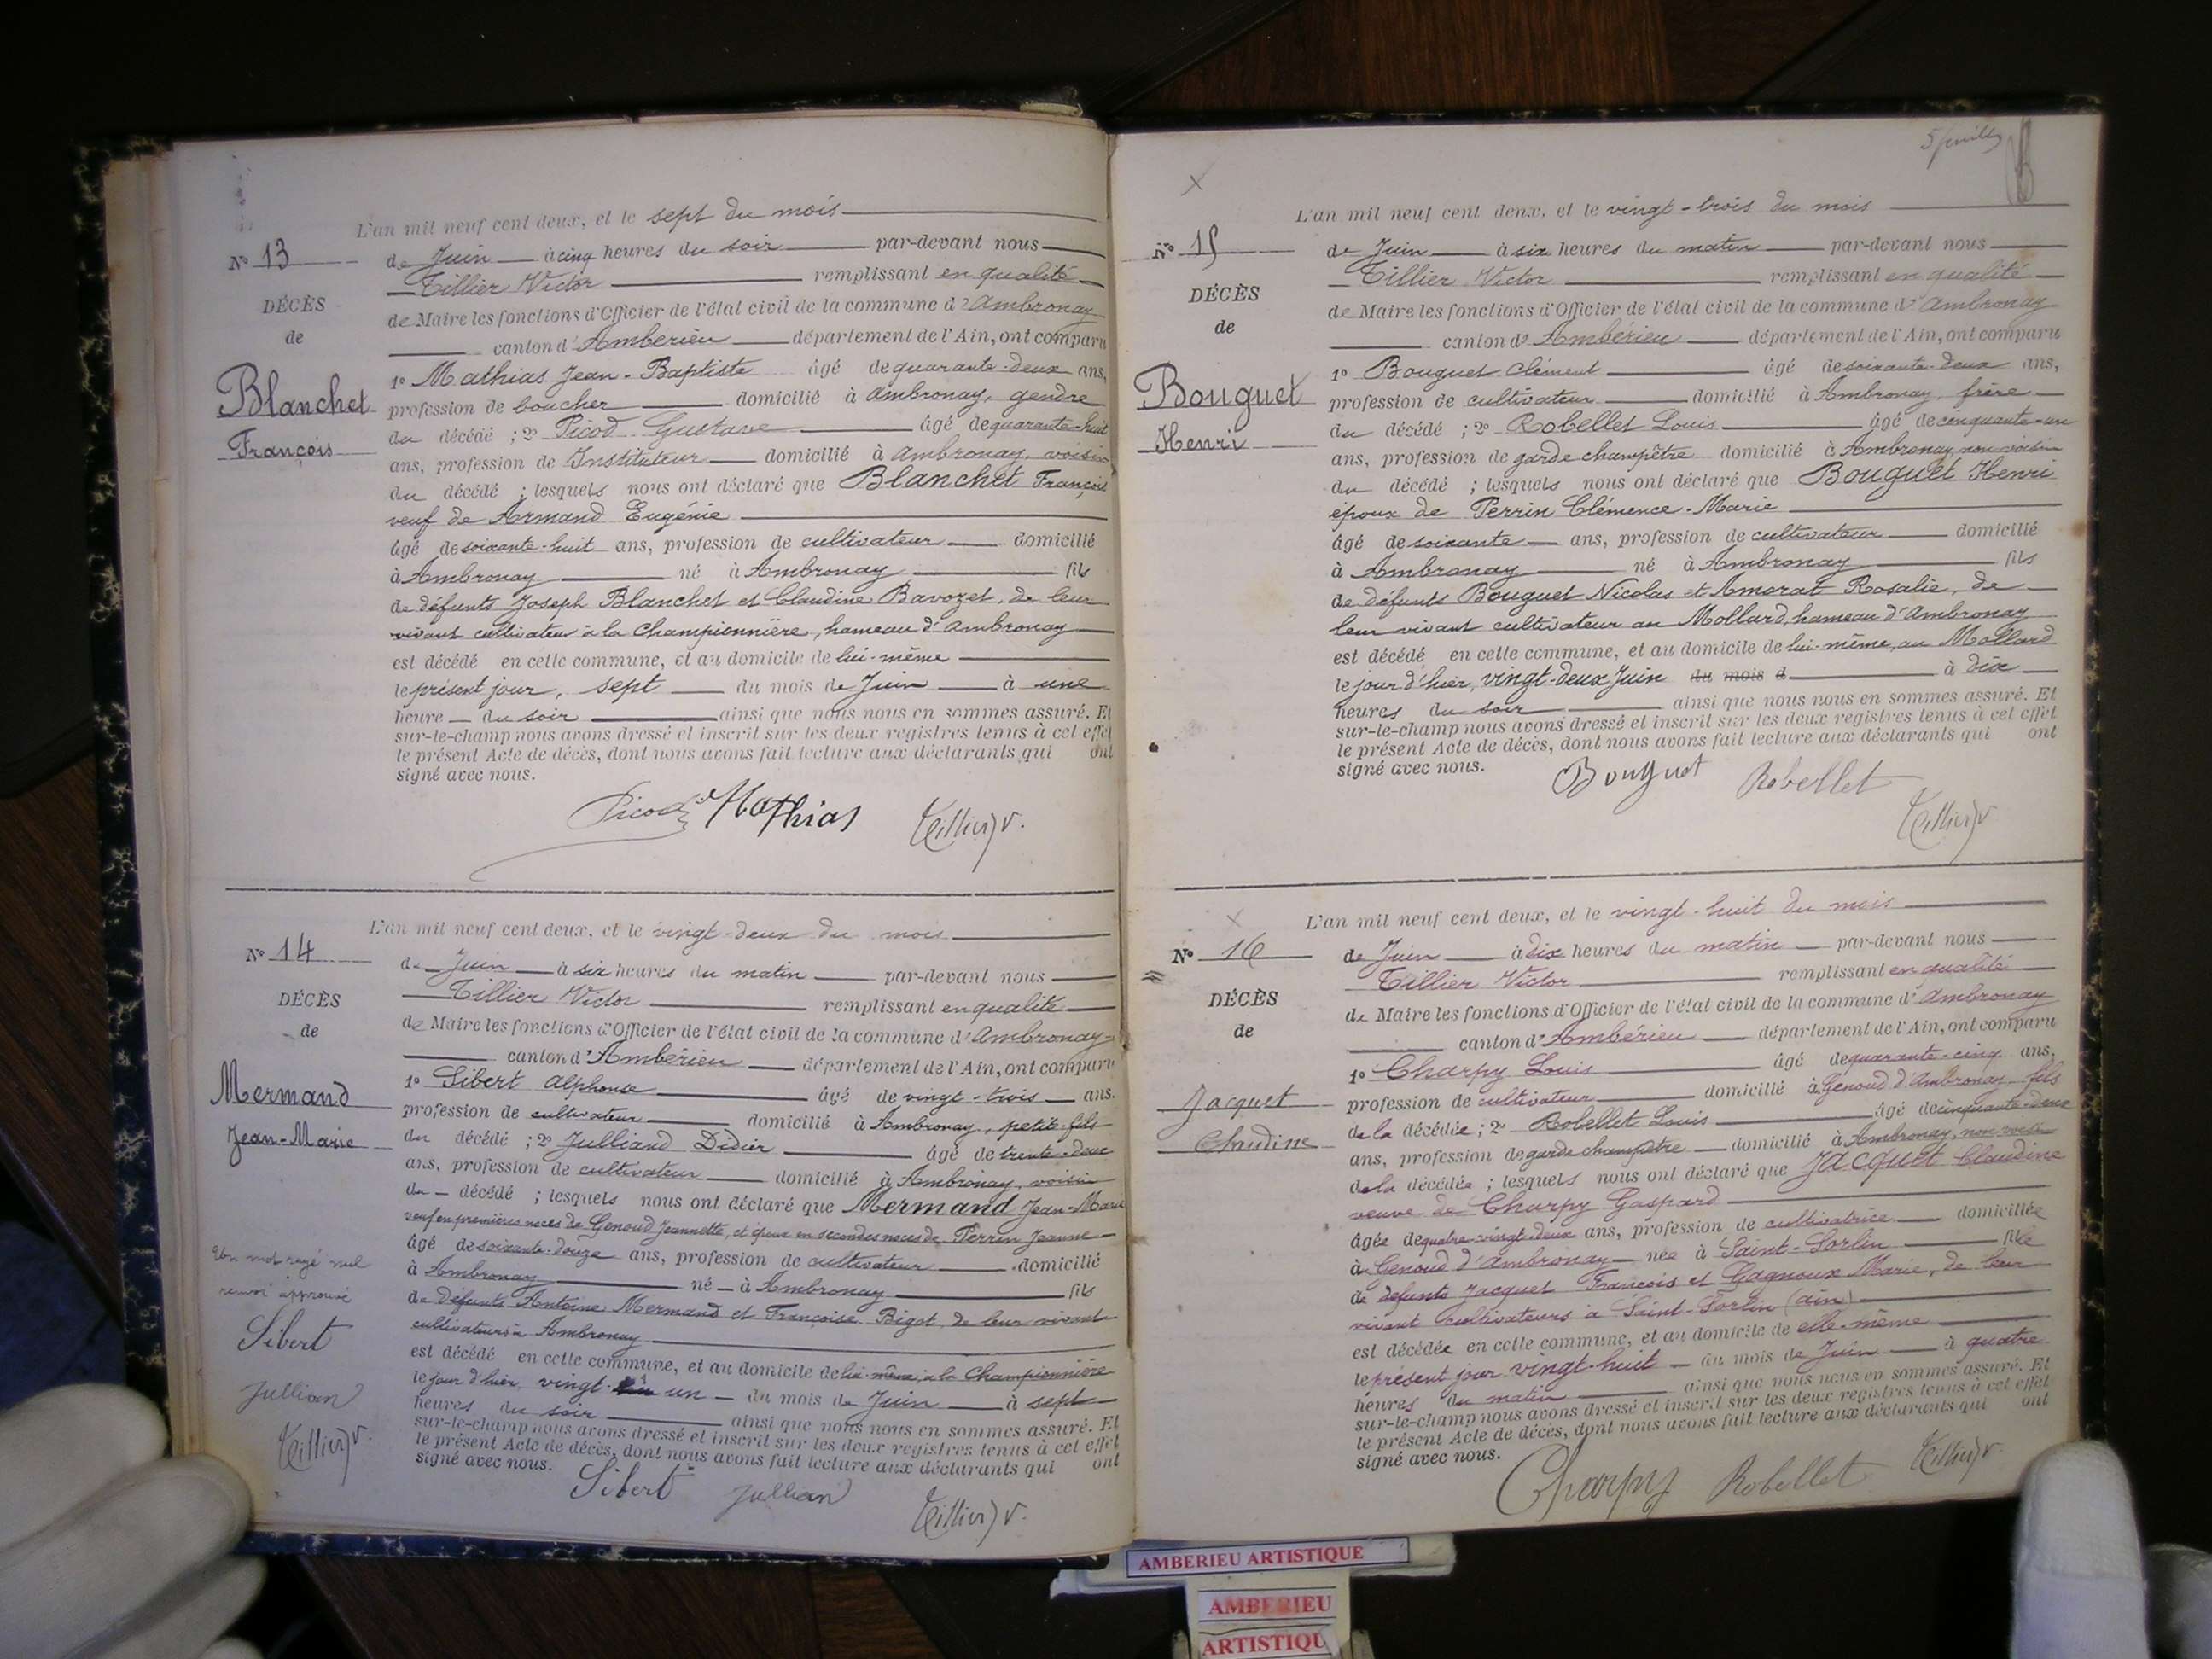 L'an mil neuf cent deux, et le sept du mois
N° 13
de Juin à cinq heures du soir par-devant nous
Tillier Victor remplissant en qualité
DÉCÈS
de Maire les fonctions d'Officier de l'état civil de la commune d'Ambronay
de
canton d'Ambérieu département de l'Ain, ont comparu
1° Mathias Jean-Baptiste âgé de quarante-deux ans,
Blanchet
profession de boucher domicilié à Ambronay, gendre
du décédé ; 2° Picod Gustave âgé de quarante-huit
François
ans, profession de Instituteur domicilié à Ambronay, voisin
du décédé ; lesquels nous ont déclaré que Blanchet François
veuf de Armand Eugénie
âgé de soixante-huit ans, profession de cultivateur domicilié
à Ambronay né à Ambronay fils
de défunts Joseph Blanchet et Claudine Bavozet, de leur
vivant cultivateur à la Championnière, hameau d'Ambronay
est décédé en cette commune, et au domicile de lui-même
le présent jour, sept du mois de Juin à une
heure du soir ainsi que nous nous en sommes assuré. Et
sur-le-champ nous avons dressé et inscrit sur les deux registres tenus à cet effet
le présent Acte de décès, dont nous avons fait lecture aux déclarants qui ont
signé avec nous.
Picod Mathias Tillier V.
L'an mil neuf cent deux, et le vingt-deux du mois
N° 14
de Juin à six heures du matin par-devant nous
Tillier Victor remplissant en qualité
DÉCÈS
de Maire les fonctions d'Officier de l'état civil de la commune d'Ambronay
de
canton d'Ambérieu département de l'Ain, ont comparu
1° Sibert Alphonse âgé de vingt-trois ans.
Mermand
profession de cultivateur domicilié à Ambronay, petit-fils
Jean-Marie
du décédé ; 2° Julliand Didier âgé de trente-deux
ans, profession de cultivateur domicilié à Ambronay, voisin
du décédé ; lesquels nous ont déclaré que Mermand Jean-Marie
veuf en premières noces de Genoud Jeannette, et époux en secondes noces de Perrin Jeanne
âgé de soixante-douze ans, profession de cultivateur domicilié
à Ambronay né à Ambronay fils
de défunts Antoine Mermand et Françoise Bigot, de leur vivant
cultivateurs à Ambronay
est décédé en cette commune, et au domicile de lui-même, à la Championnière
le jour d'hier, vingt-un du mois de Juin à sept
heures du soir ainsi que nous nous en sommes assuré. Et
sur-le-champ nous avons dressé et inscrit sur les deux registres tenus à cet effet
le présent Acte de décès, dont nous avons fait lecture aux déclarants qui ont
signé avec nous.
Sibert Jullian Tillier V.
Un mot rayé nul
renvoi approuvé
Sibert
Jullian
Tillier V.
5 juillet
L'an mil neuf cent deux, et le vingt-trois du mois
N° 15
de Juin à six heures du matin par-devant nous
Tillier Victor remplissant en qualité
DÉCÈS
de Maire les fonctions d'Officier de l'état civil de la commune d'Ambronay
de
canton d'Ambérieu département de l'Ain, ont comparu
1° Bouguet Clément âgé de soixante-deux ans,
Bouguet
profession de cultivateur domicilié à Ambronay, frère
du décédé ; 2° Robellet Louis âgé de cinquante-un
Henri
ans, profession de garde champêtre domicilié à Ambronay, non voisin
du décédé ; lesquels nous ont déclaré que Bouguet Henri
époux de Perrin Clémence-Marie
âgé de soixante ans, profession de cultivateur domicilié
à Ambronay né à Ambronay fils
de défunts Bouguet Nicolas et Amorat Rosalie, de
leur vivant cultivateur au Mollard, hameau d'Ambronay
est décédé en cette commune, et au domicile de lui-même, au Mollard
le jour d'hier, vingt-deux Juin du mois d à dix
heures du soir ainsi que nous nous en sommes assuré. Et
sur-le-champ nous avons dressé et inscrit sur les deux registres tenus à cet effet
le présent Acte de décès, dont nous avons fait lecture aux déclarants qui ont
signé avec nous.
Bouguet Robellet
Tillier V
L'an mil neuf cent deux, et le vingt-huit du mois
N° 16
de Juin à dix heures du matin par-devant nous
Tillier Victor remplissant en qualité
DÉCÈS
de Maire les fonctions d'Officier de l'état civil de la commune d'Ambronay
de
canton d'Ambérieu département de l'Ain, ont comparu
1° Charpy Louis âgé de quarante-cinq ans.
Jacquet
profession de cultivateur domicilié à Genoud d'Ambronay fils
de la décédée ; 2° Robellet Louis âgé de cinquante-deux
Claudine
ans, profession de garde champêtre domicilié à Ambronay, non voisin
de la décédée ; lesquels nous ont déclaré que Jacquet Claudine
veuve de Charpy Gaspard
âgée de quatre-vingt-deux ans, profession de cultivatrice domiciliée
à Genoud d'Ambronay née à Saint-Sorlin fille
de défunts Jacquet François et Gagnoux Marie, de leur
vivant cultivateurs à Saint-Sorlin (Ain)
est décédée en cette commune, et au domicile de elle-même
le présent jour vingt-huit du mois de Juin à quatre
heures du matin ainsi que nous nous en sommes assuré. Et
sur-le-champ nous avons dressé et inscrit sur les deux registres tenus à cet effet
le présent Acte de décès, dont nous avons fait lecture aux déclarants qui ont
signé avec nous.
Charpy Robellet Tillier V
AMBERIEU ARTISTIQUE
AMBERIEU
ARTISTIQU